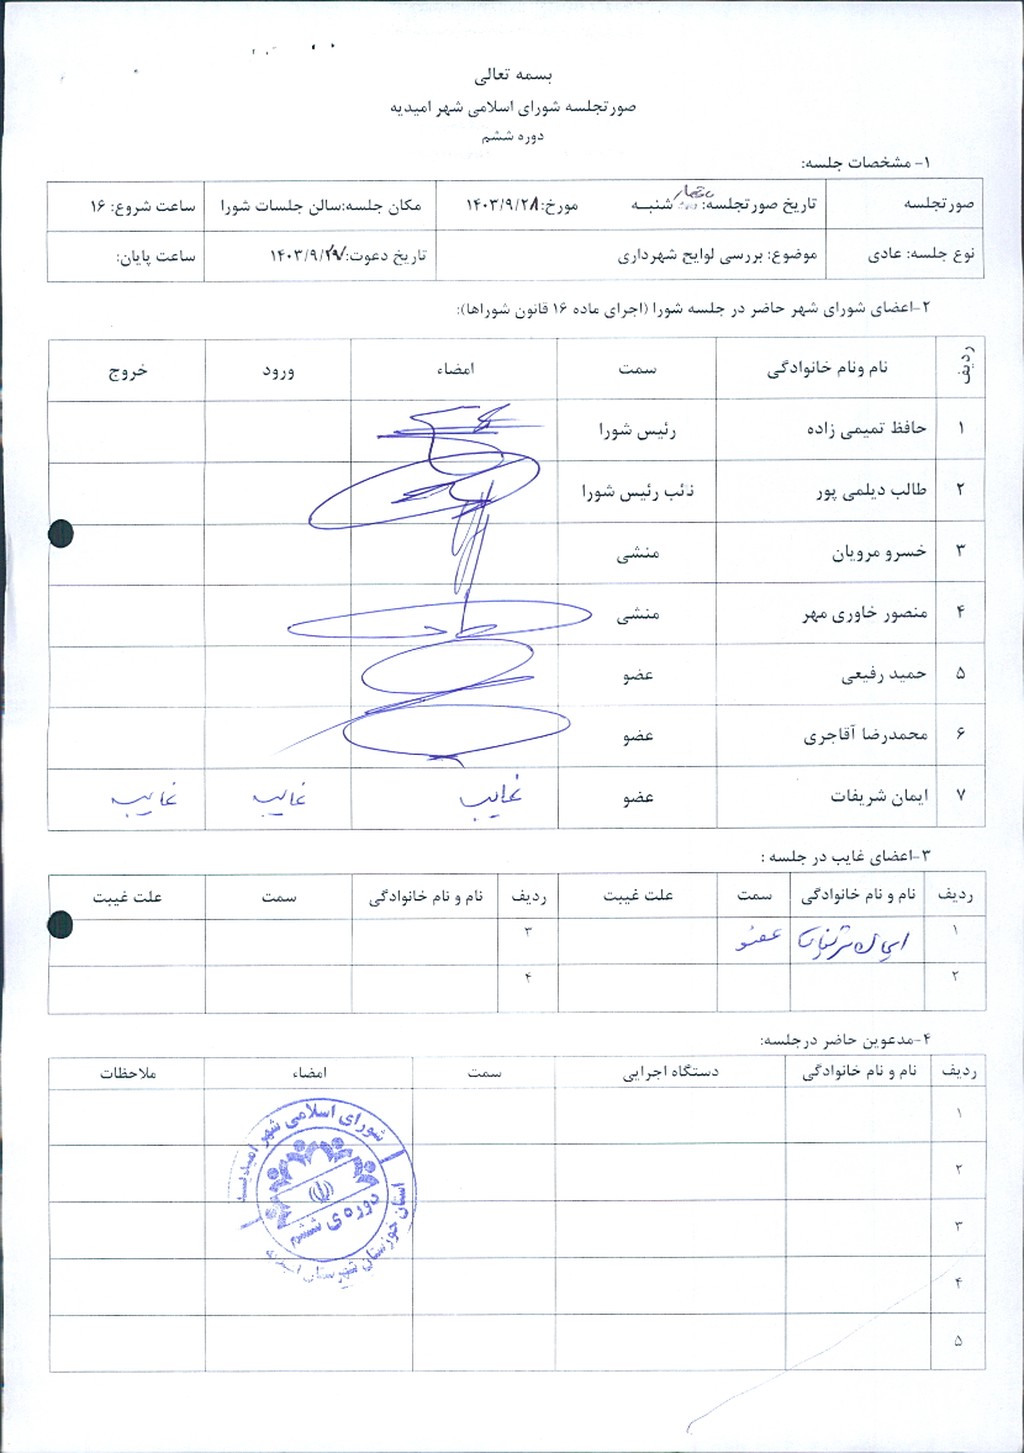 بسمه تعالی
صورتجلسه شورای اسلامی شهر امیدیه
دوره ششم
۱- مشخصات جلسه:
صورتجلسه تاریخ صورتجلسه: شنبه مورخ:۱۴۰۳/۹/۲۸ مکان جلسه:سالن جلسات شورا ساعت شروع: ۱۶
نوع جلسه: عادی موضوع: بررسی لوایح شهرداری تاریخ دعوت: ۱۴۰۳/۹/ ساعت پایان:
۲-اعضای شورای شهر حاضر در جلسه شورا (اجرای ماده ۱۶ قانون شوراها):
ردیف نام ونام خانوادگی سمت امضاء ورود خروج
۱ حافظ تمیمی زاده رئیس شورا
۲ طالب دیلمی پور نائب رئیس شورا
۳ خسرو مرویان منشی
۴ منصور خاوری مهر منشی
۵ حمید رفیعی عضو
۶ محمدرضا آقاجری عضو
۷ ایمان شریفات عضو غایب غایب غایب
۳-اعضای غایب در جلسه :
ردیف نام و نام خانوادگی سمت علت غیبت ردیف نام و نام خانوادگی سمت علت غیبت
۱ ایمان شریفات عضو ۳
۲ ۴
۴-مدعوین حاضر درجلسه:
ردیف نام و نام خانوادگی دستگاه اجرایی سمت امضاء ملاحظات
۱
۲
۳
۴
۵
شورای اسلامی شهر امیدیه
دوره ی ششم
استان خوزستان شهرستان امیدیه